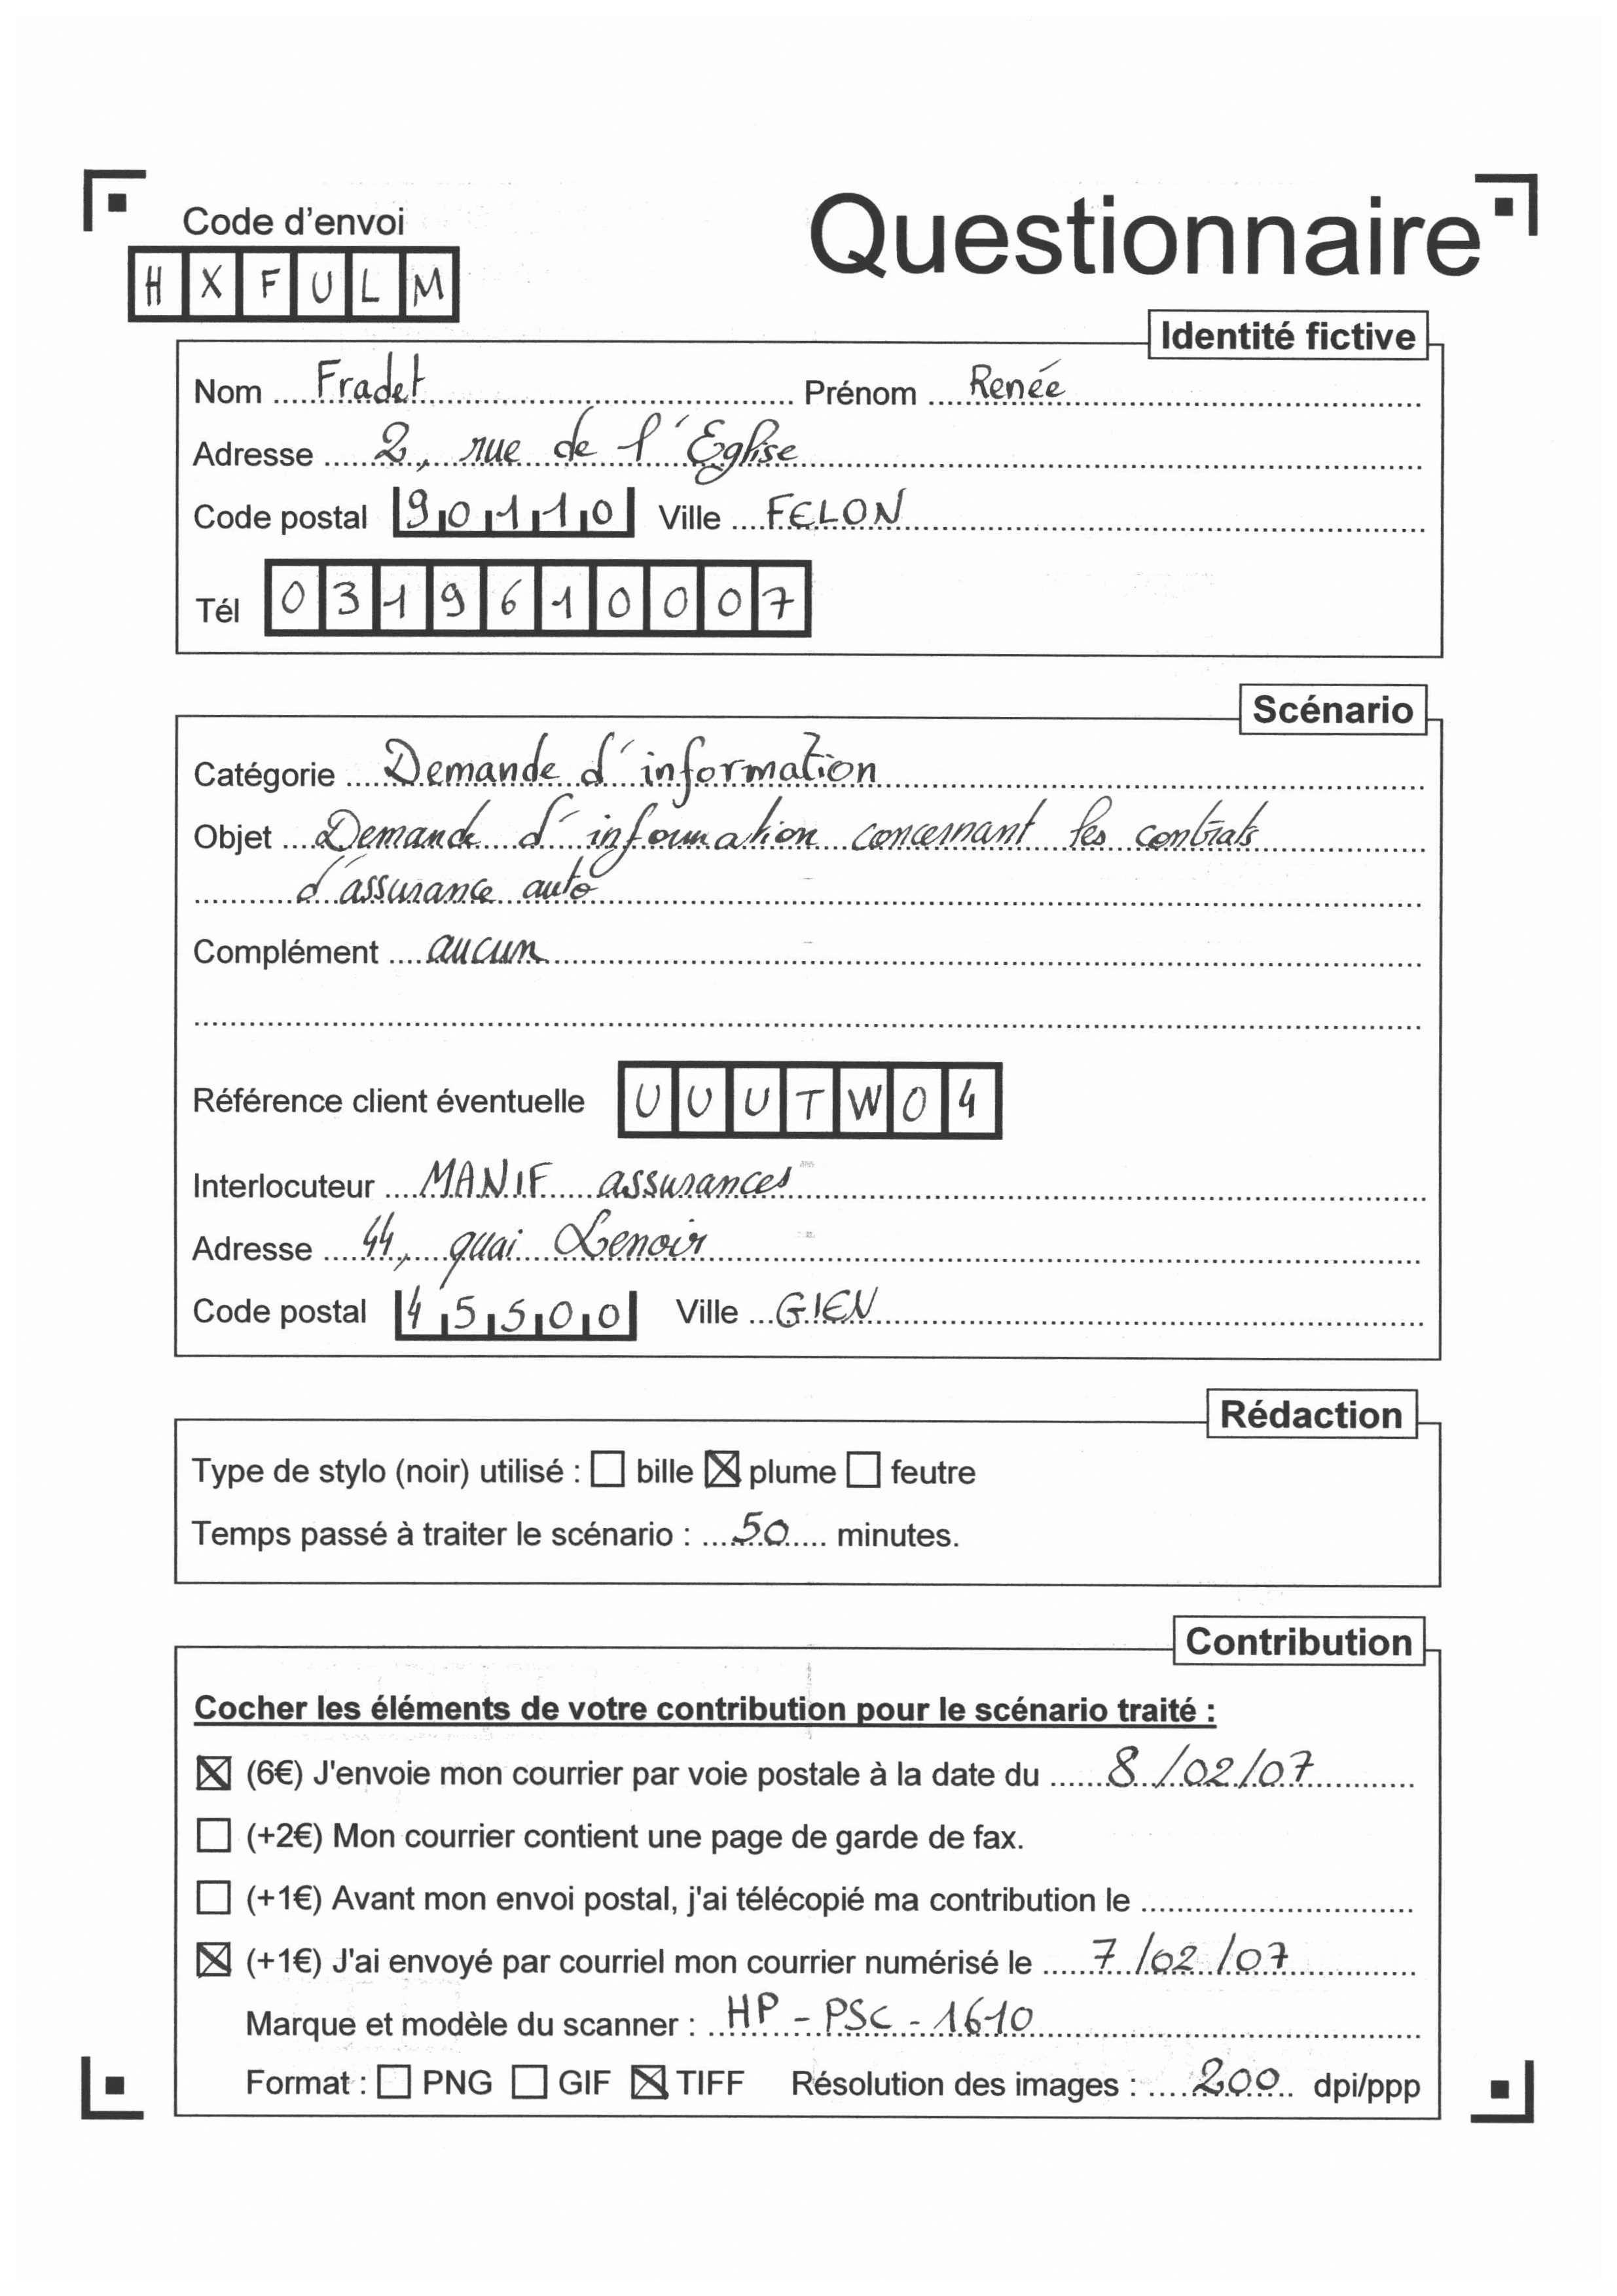 Code d'envoi
Questionnaire
H X F U L M
Identité fictive
Nom Fradet Prénom Renée
Adresse 2, rue de l'Eglise
Code postal 90110 Ville FELON
Tél 0319610007
Scénario
Catégorie Demande d'information
Objet Demande d'information concernant les contrats
d'assurance auto
Complément aucun
Référence client éventuelle UUUTWO4
Interlocuteur MANIF assurances
Adresse 44, quai Lenoir
Code postal 45500 Ville GIEN
Rédaction
Type de stylo (noir) utilisé : ☐ bille ☒ plume ☐ feutre
Temps passé à traiter le scénario : 50 minutes.
Contribution
Cocher les éléments de votre contribution pour le scénario traité :
☒ (6€) J'envoie mon courrier par voie postale à la date du 8/02/07
☐ (+2€) Mon courrier contient une page de garde de fax.
☐ (+1€) Avant mon envoi postal, j'ai télécopié ma contribution le
☒ (+1€) J'ai envoyé par courriel mon courrier numérisé le 7/02/07
Marque et modèle du scanner : HP - PSC - 1610
Format : ☐ PNG ☐ GIF ☒ TIFF Résolution des images : 200 dpi/ppp